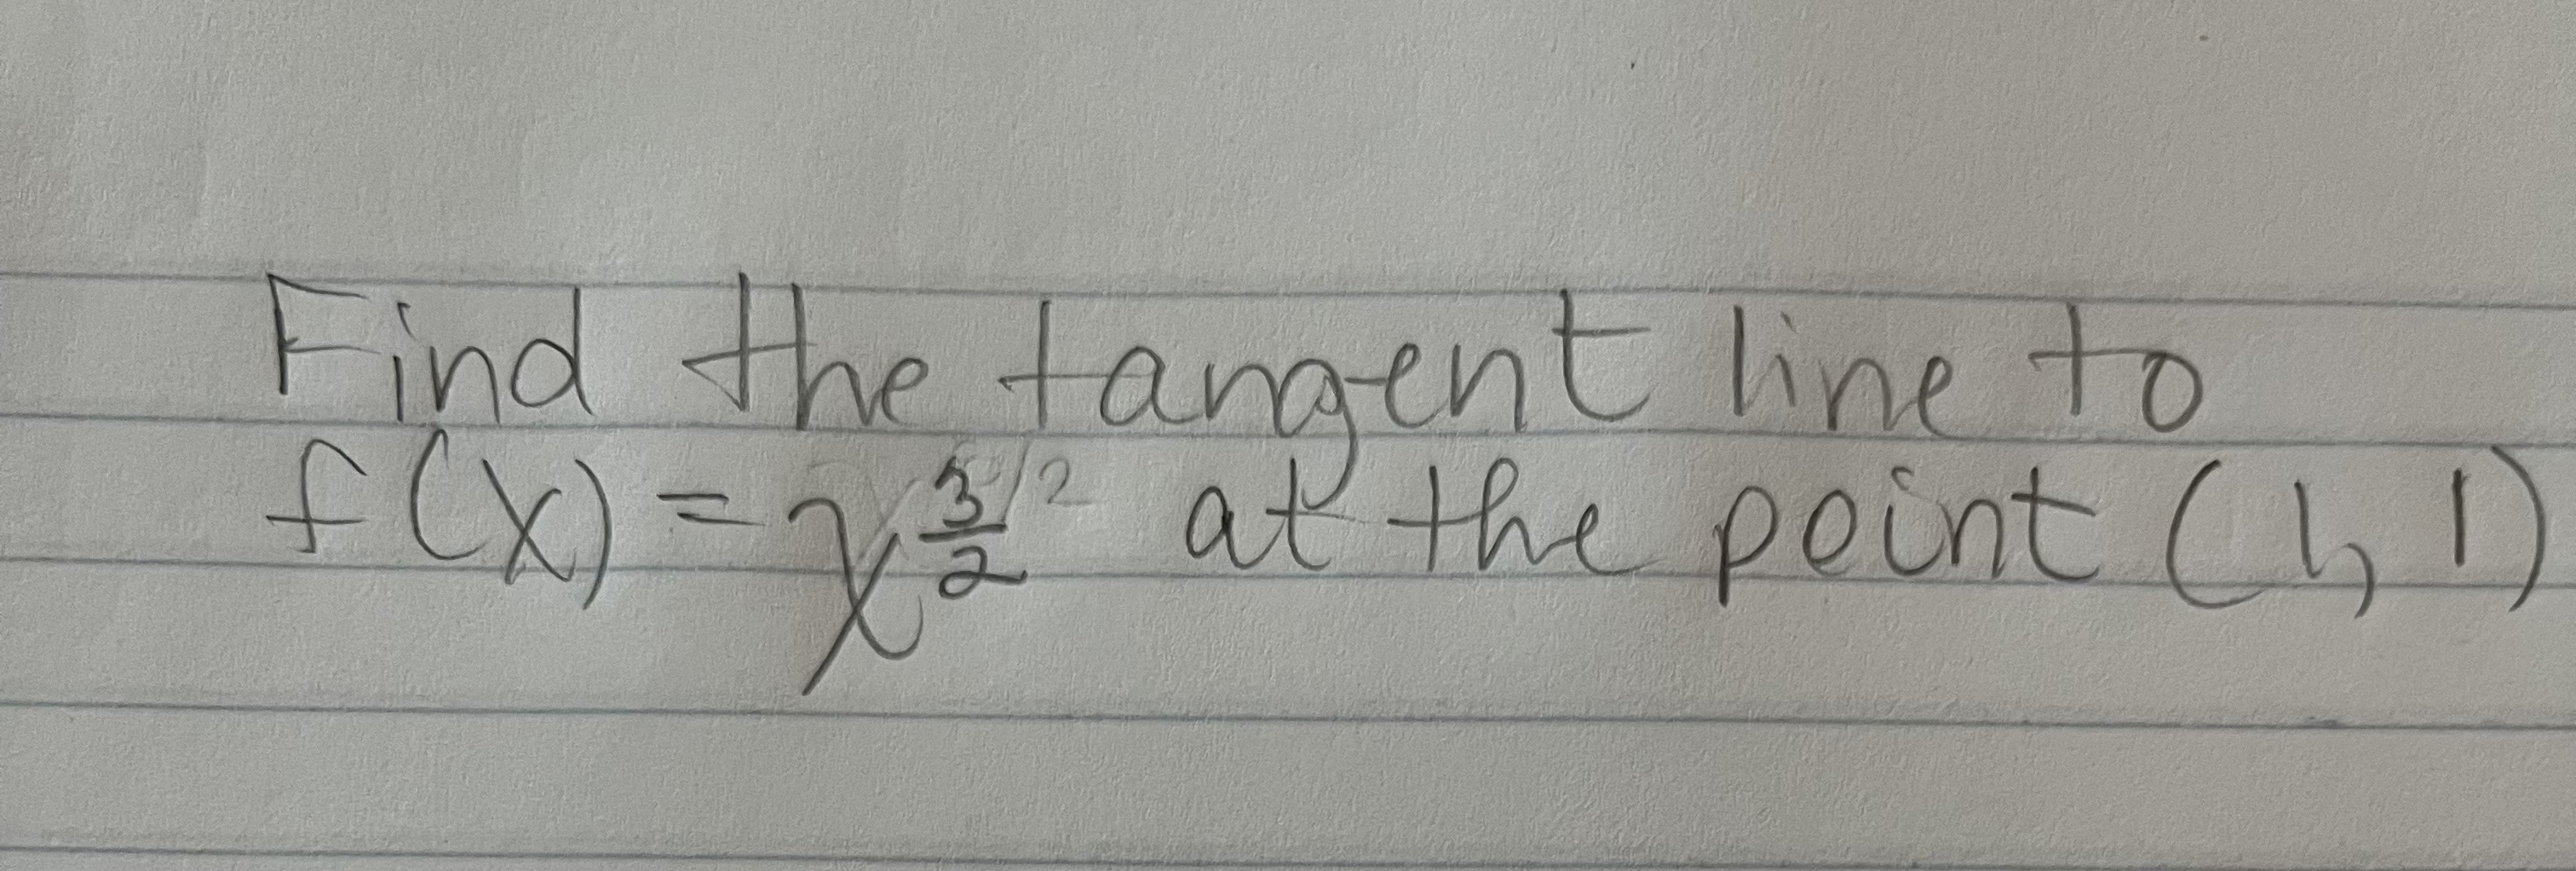 Find the tangent line to
f(x) = x^{3/2} at the point (1, 1)